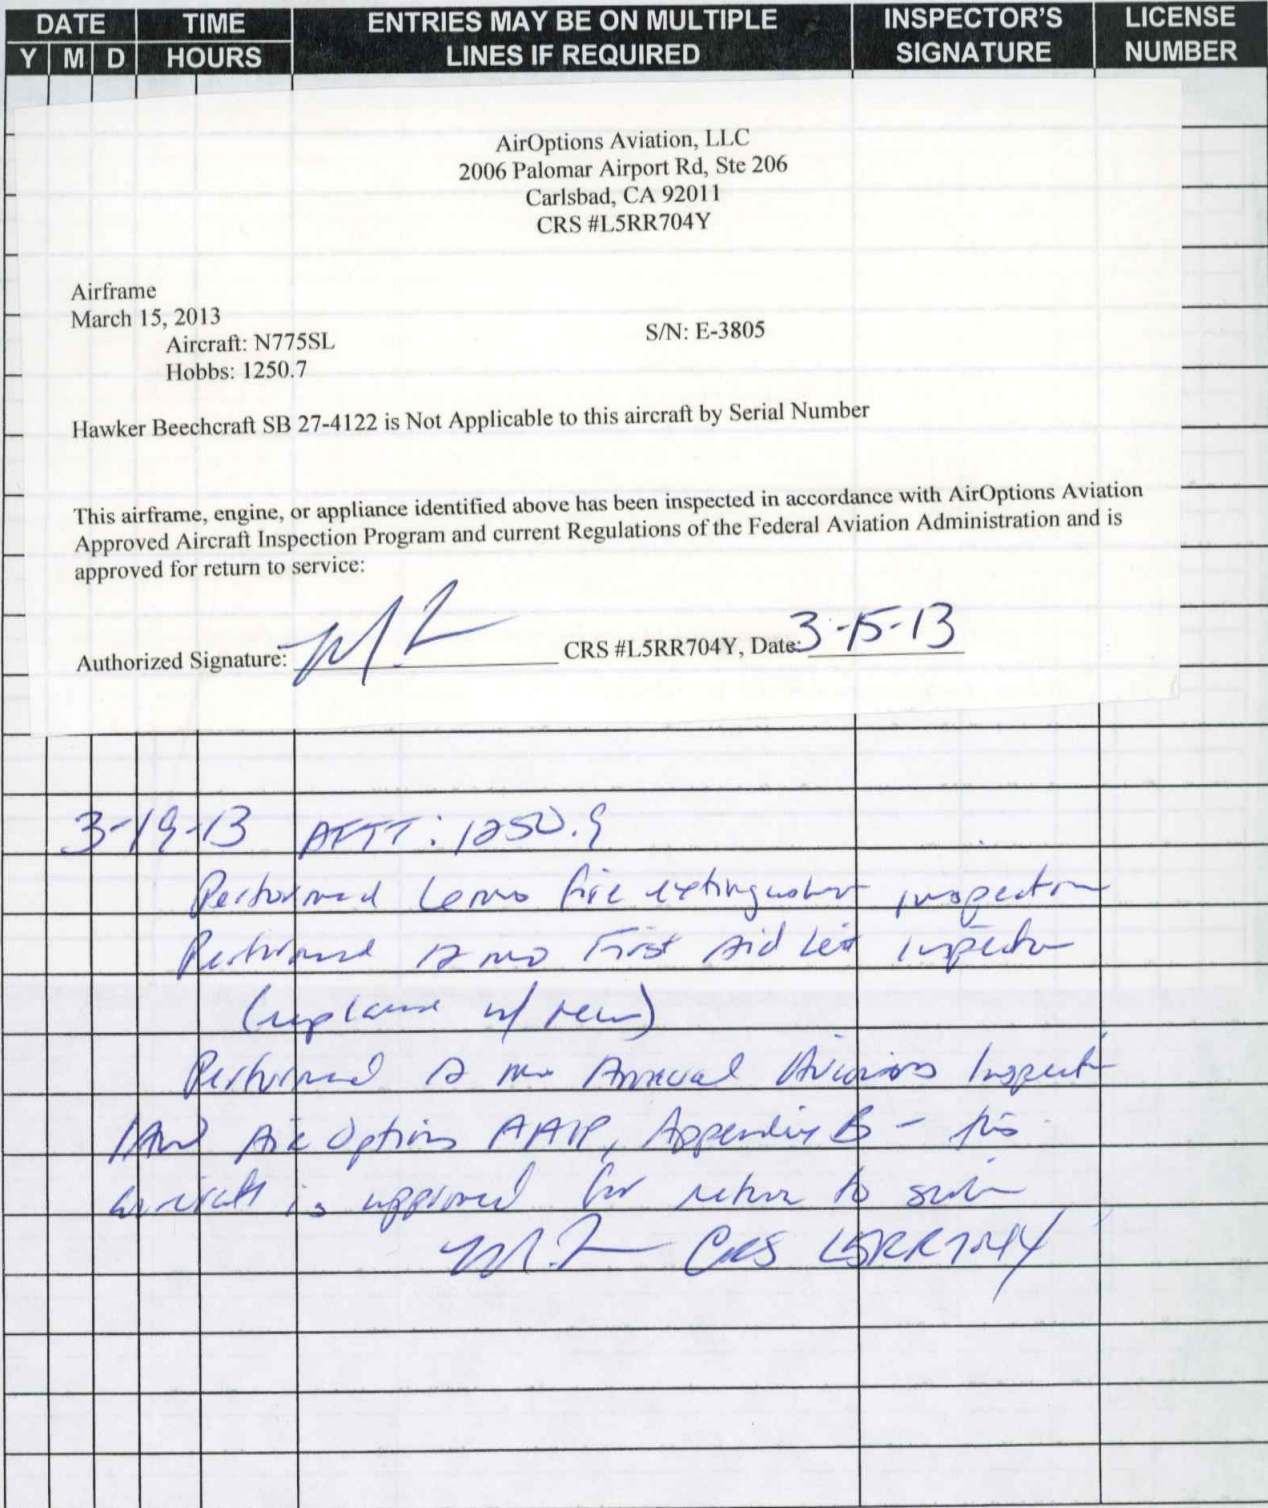 DATE TIME ENTRIES MAY BE ON MULTIPLE INSPECTOR'S LICENSE
Y M D HOURS LINES IF REQUIRED SIGNATURE NUMBER
AirOptions Aviation, LLC
2006 Palomar Airport Rd, Ste 206
Carlsbad, CA 92011
CRS #L5RR704Y
Airframe
March 15, 2013
Aircraft: N775SL S/N: E-3805
Hobbs: 1250.7
Hawker Beechcraft SB 27-4122 is Not Applicable to this aircraft by Serial Number
This airframe, engine, or appliance identified above has been inspected in accordance with AirOptions Aviation
Approved Aircraft Inspection Program and current Regulations of the Federal Aviation Administration and is
approved for return to service:
Authorized Signature: CRS #L5RR704Y, Date: 3-15-13
3-19-13 AFTT: 1250.9
Performed fire extinguisher inspection
Performed 12 mo First Aid kit inspection
(replaced w/ new)
Performed 12 mo Annual Avionics Inspection
IAW Air Options AAIP, Appendix B - this
aircraft is approved for return to service
CRS L5RR704Y